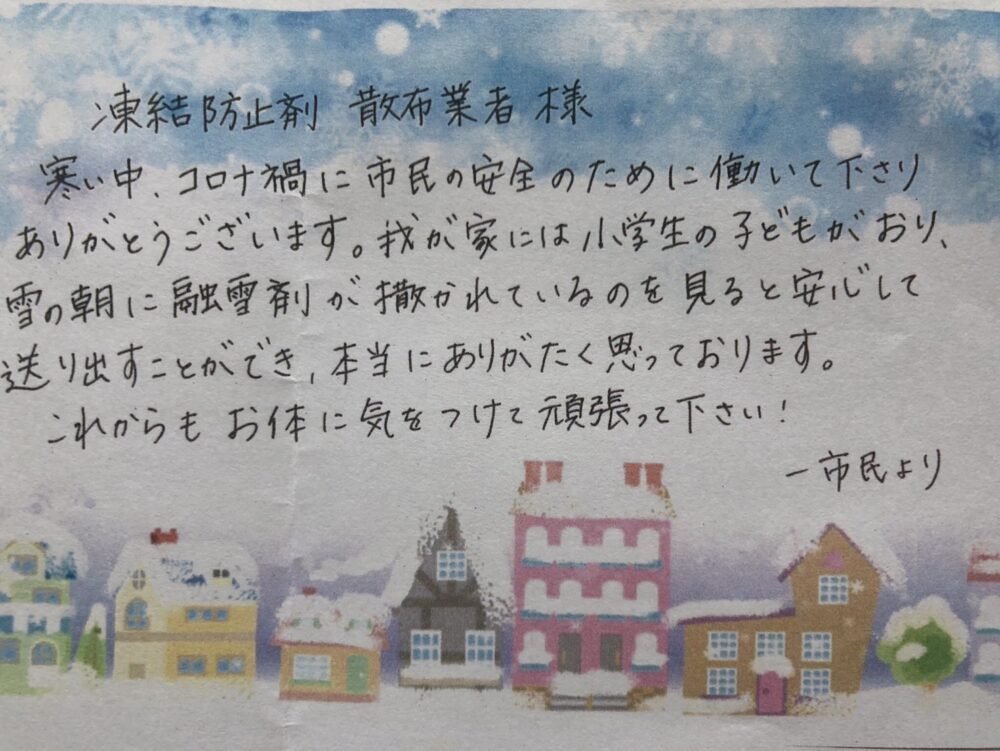 凍結防止剤 散布業者 様
寒い中、コロナ禍に市民の安全のために働いて下さり
ありがとうございます。我が家には小学生の子どもがおり、
雪の朝に融雪剤が撒かれているのを見ると安心して
送り出すことができ、本当にありがたく思っております。
これからもお体に気をつけて頑張って下さい!
一市民より